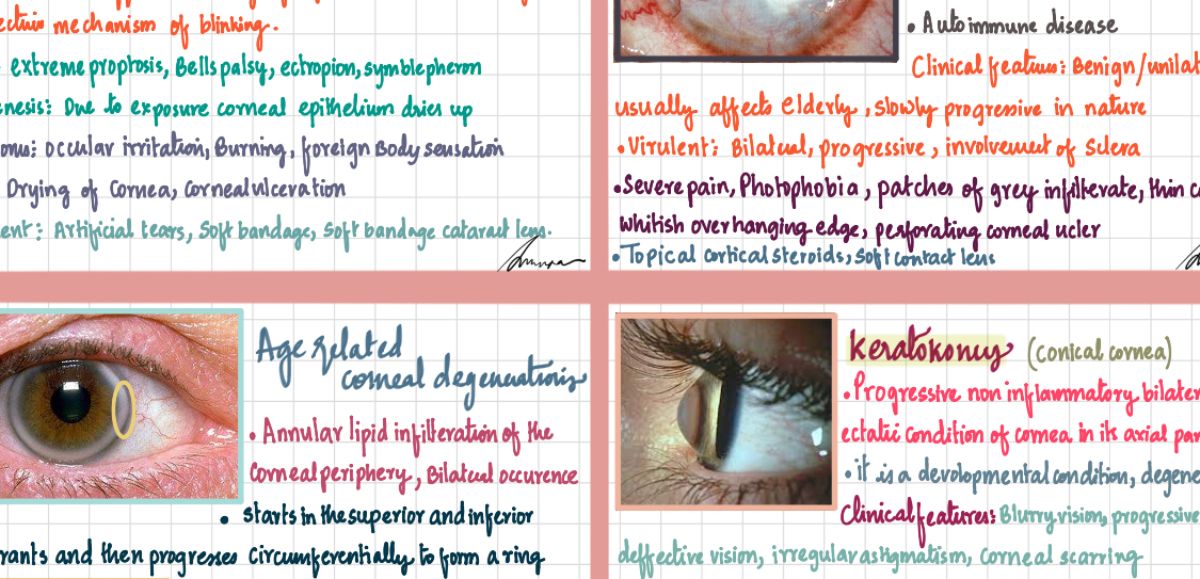 ective mechanism of blinking.
extreme proptosis, Bells palsy, ectropion, symblepheron
enesis: Due to exposure corneal epithelium dries up
oms: occular irritation, Burning, foreign Body sensation
Drying of Cornea, corneal ulceration
ent: Artificial tears, Soft bandage, Soft bandage cataract lens.
• Autoimmune disease
Clinical features: Benign/unilat
usually affects elderly, slowly progressive in nature
• Virulent: Bilateral, progressive, involvement of Sclera
• Severe pain, Photophobia, patches of grey infilterate, thin co
Whitish overhanging edge, perforating corneal ucler
• Topical cortical steroids, Soft contact lens
Age related
corneal degenerations
• Annular lipid infilteration of the
Corneal periphery, Bilateral occurence
• starts in the superior and inferior
rants and then progresses circumferentially to form a ring
keratokonus (conical cornea)
• Progressive non inflammatory bilater
ectatic condition of cornea in its axial par
• it is a devolopmental condition, degene
Clinical features: Blurry vision, progressive
deffective vision, irregular astigmatism, Corneal scarring